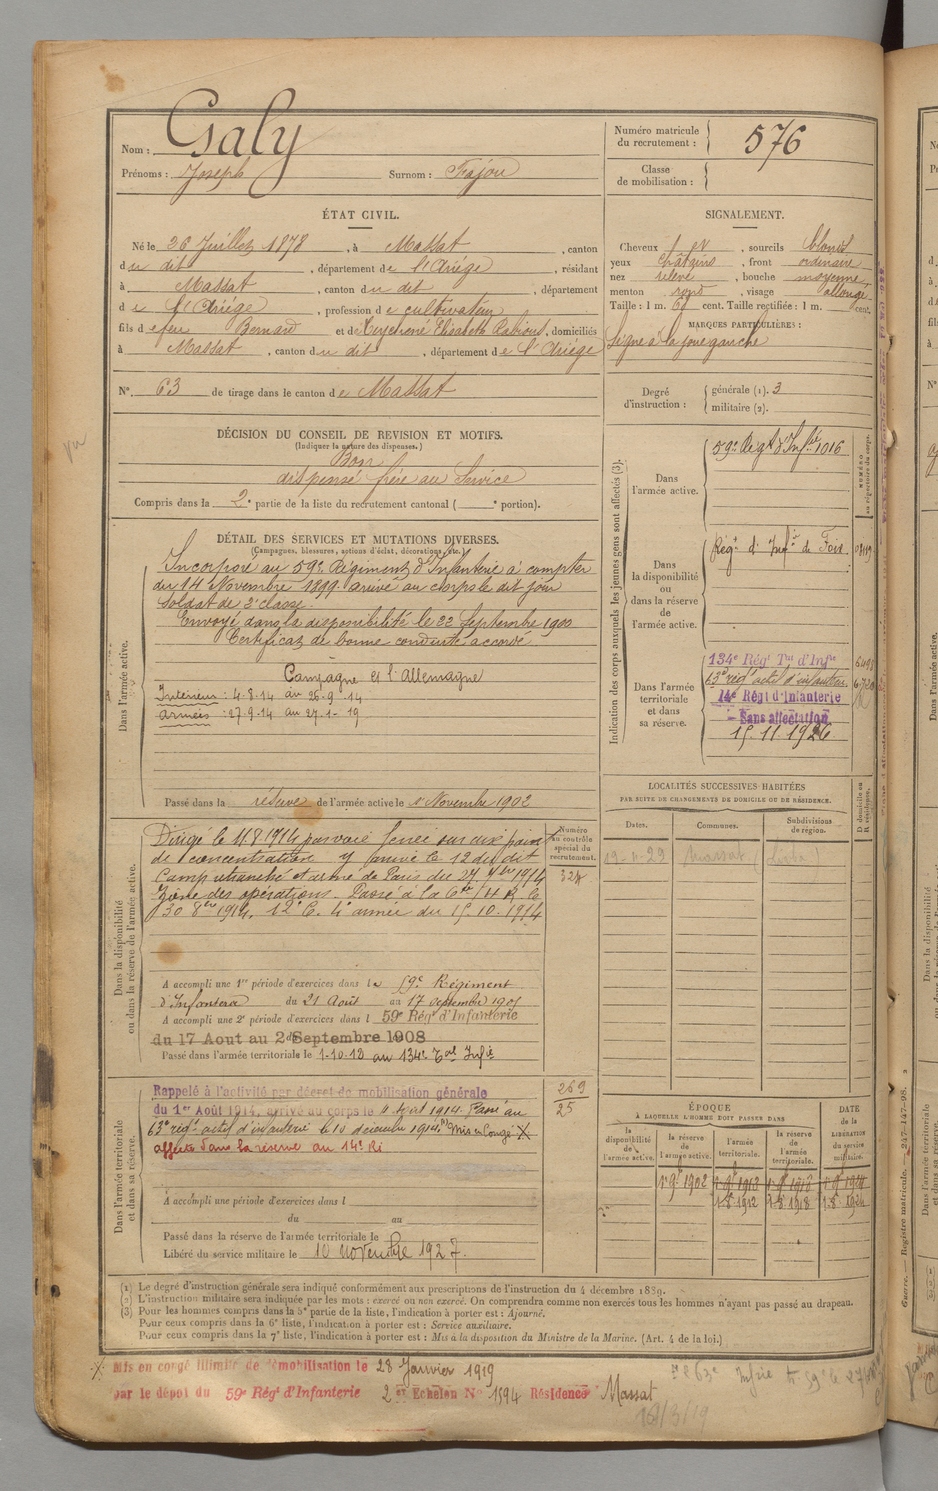 Nom : Galy
Prénoms : Joseph Surnom : Fajou
Numéro matricule du recrutement : 576
Classe de mobilisation :
ÉTAT CIVIL.
Né le 26 Juillet 1878, à Massat, canton
du dit, département de l'Ariège, résidant
à Massat, canton du dit, département
de l'Ariège, profession de cultivateur
fils de feu Bernard et de Elisabeth, domiciliés
à Massat, canton du dit, département de l'Ariège
N°. 63 de tirage dans le canton de Massat
SIGNALEMENT.
Cheveux, sourcils blonds
yeux châtains, front ordinaire
nez relevé, bouche moyenne
menton rond, visage allongé
Taille : 1 m. cent. Taille rectifiée : 1 m. cent.
MARQUES PARTICULIÈRES :
Signe à la joue gauche
Degré d'instruction : générale (1). 3
militaire (2).
vu
DÉCISION DU CONSEIL DE REVISION ET MOTIFS.
(Indiquer la nature des dispenses.)
Bon
dispensé frère au Service
Compris dans la 2e partie de la liste du recrutement cantonal ( portion).
DÉTAIL DES SERVICES ET MUTATIONS DIVERSES.
(Campagnes, blessures, actions d'éclat, décorations, etc.)
Dans l'armée active.
Incorporé au 59e Régiment d'Infanterie à compter
du 14 Novembre 1899 arrivé au corps le dit jour
soldat de 2e classe.
Envoyé dans la disponibilité le 22 Septembre 1900
Certificat de bonne conduite accordé
Campagne contre l'Allemagne
Intérieur : 4-8-14 au 26-9-14
Armées : 27-9-14 au 27-1-19
Passé dans la réserve de l'armée active le 1er Novembre 1902
Dans la disponibilité ou dans la réserve de l'armée active.
Dirigé le 11.8.1914 par voie ferrée sur aux points
de concentration y arrivé le 12 du dit
Camp retranché et armé de Paris du 27 7bre 1914
Zône des opérations. Passé à la 6e
30 8bre 1914. 12e C. 4e armée du 15.10.1914
Numéro au contrôle spécial du recrutement.
A accompli une 1re période d'exercices dans le 59e Régiment
d'Infanterie du 21 Août au 17 septembre 1905
A accompli une 2e période d'exercices dans l 59e Régt d'Infanterie
du 17 Aout au 2 Septembre 1908
Passé dans l'armée territoriale le 1-10-12 au 134e Tal Infie
Dans l'armée territoriale et dans sa réserve.
Rappelé à l'activité par décret de mobilisation générale
du 1er Août 1914, arrivé au corps le 4 août 1914. Passé au
63e régt actif d'infanterie le 10 décembre 1914. Mis en Congé X
affecté dans la réserve au 14e RI
269
25
A accompli une période d'exercices dans l
du au
Passé dans la réserve de l'armée territoriale le
Libéré du service militaire le 10 novembre 1927.
Indication des corps auxquels les jeunes gens sont affectés (3).
Dans l'armée active.
59e Régt d'Infie 1016
NUMÉRO au répertoire du corps.
Dans la disponibilité ou dans la réserve de l'armée active.
Régt d'Infie de Foix
Dans l'armée territoriale et dans sa réserve.
134e Régt Tal d'Infie
63e régt actif d'infanterie
14e Régt d'Infanterie
Sans affectation
15.11.1926
LOCALITÉS SUCCESSIVES HABITÉES
PAR SUITE DE CHANGEMENTS DE DOMICILE OU DE RÉSIDENCE.
Dates. Communes. Subdivisions de région. D. domicile ou R. résidence.
Massat
ÉPOQUE
À LAQUELLE L'HOMME DOIT PASSER DANS
la disponibilité de l'armée active.
la réserve de l'armée active.
l'armée territoriale.
la réserve de l'armée territoriale.
DATE de la LIBÉRATION du service militaire.
1er 9bre 1902
1-8-1912 1-8-1918 1-8-1924
(1) Le degré d'instruction générale sera indiqué conformément aux prescriptions de l'instruction du 4 décembre 1889.
(2) L'instruction militaire sera indiquée par les mots : exercé ou non exercé. On comprendra comme non exercés tous les hommes n'ayant pas passé au drapeau.
(3) Pour les hommes compris dans la 5e partie de la liste, l'indication à porter est : Ajourné.
Pour ceux compris dans la 6e liste, l'indication à porter est : Service auxiliaire.
Pour ceux compris dans la 7e liste, l'indication à porter est : Mis à la disposition du Ministre de la Marine. (Art. 4 de la loi.)
X Mis en congé illimité de démobilisation le 28 Janvier 1919
par le dépôt du 59e Régt d'Infanterie 2er Echelon N° 1594 Résidence Massat